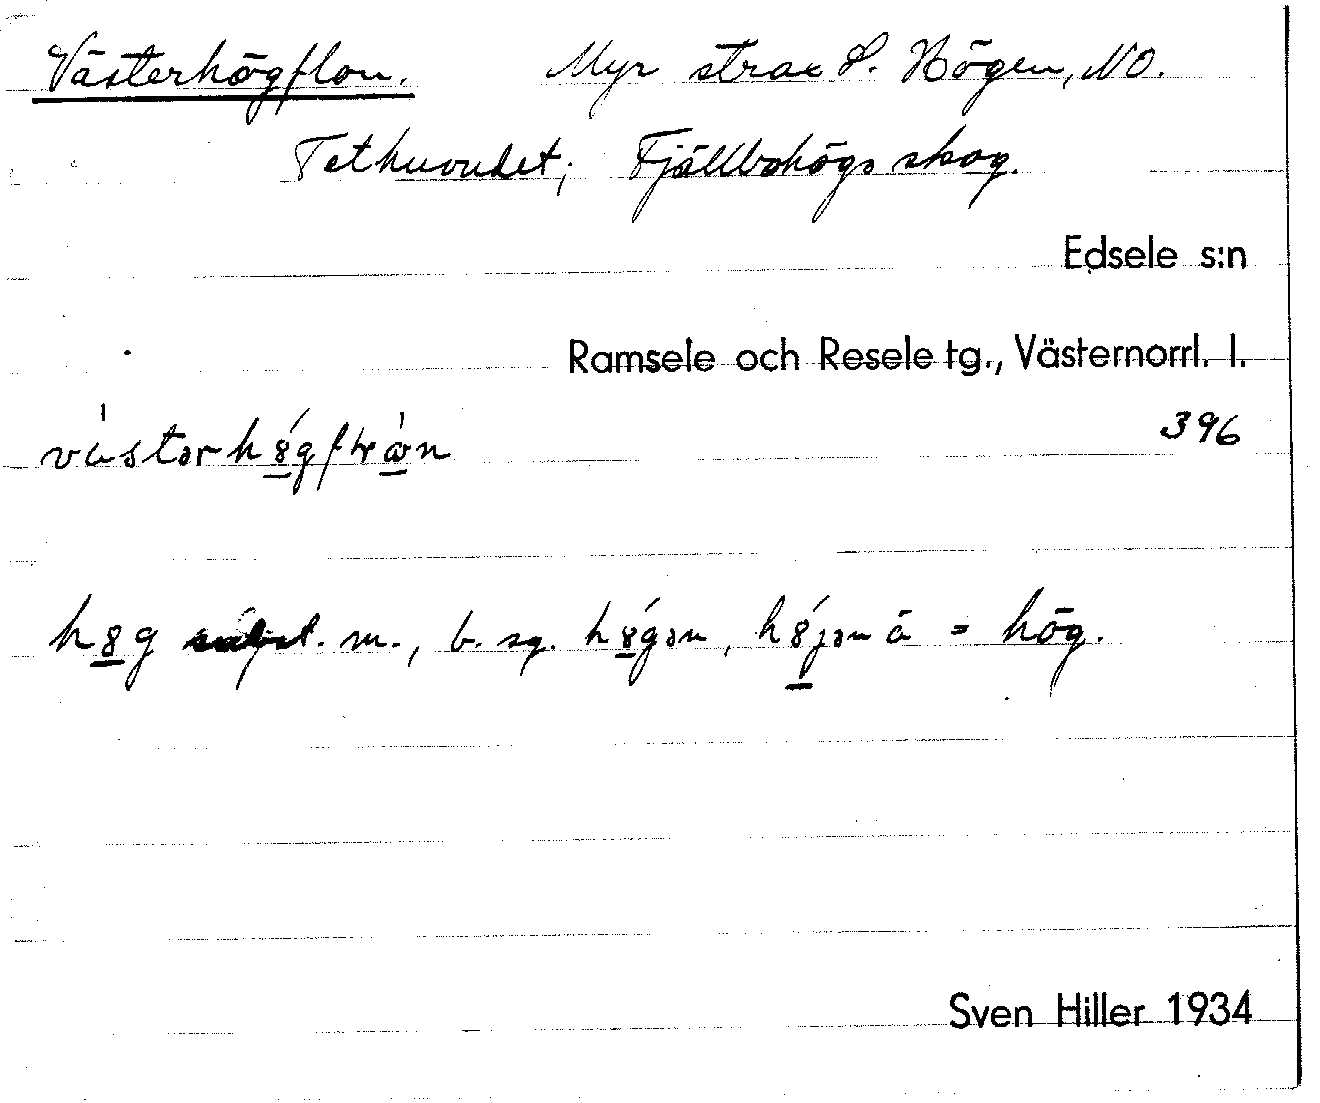 Västerhögflon. Myr strax S. Högen, NO.
Tethuvudet; Fjällbohögs skog.
Edsele s:n
Ramsele och Resele tg., Västernorrl. l.
396
h8g subst. m., b. sg. h8́gən, h8́jən ā = hög.
Sven Hiller 1934